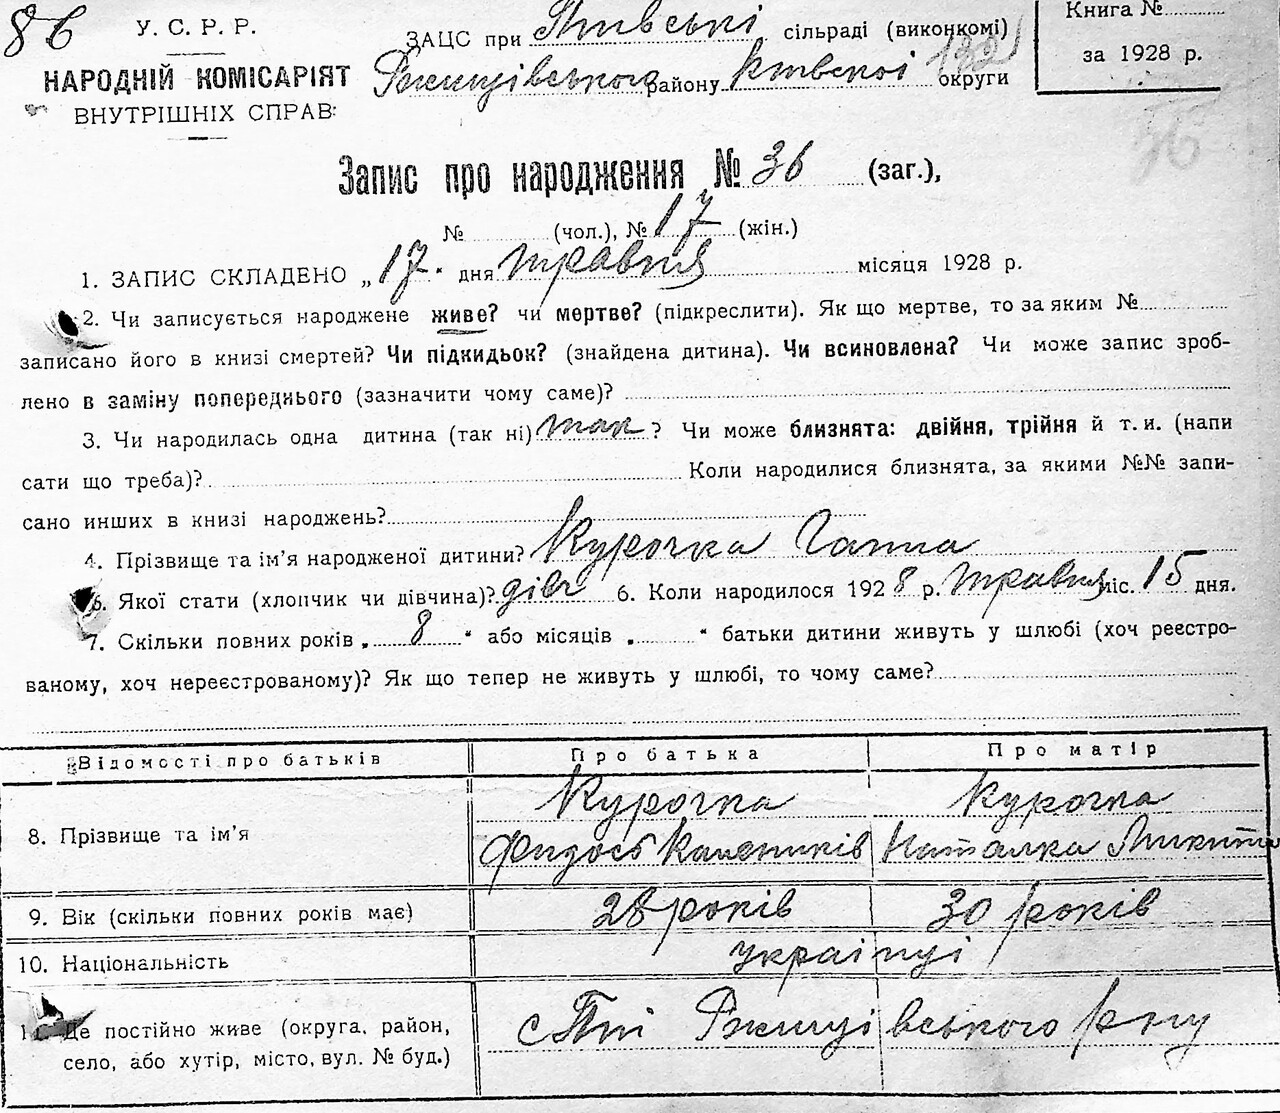 86
У. С. Р. Р.
НАРОДНІЙ КОМІСАРІЯТ
ВНУТРІШНІХ СПРАВ
ЗАЦС при Пиївські сільраді (виконкомі)
Ржищівського району Київської округи
Книга №
за 1928 р.
36
Запис про народження № 36 (заг.),
№ (чол.), № 17 (жін.)
1. ЗАПИС СКЛАДЕНО „17“ дня травня місяця 1928 р.
2. Чи записується народжене живе? чи мертве? (підкреслити). Як що мертве, то за яким №
записано його в книзі смертей? Чи підкидьок? (знайдена дитина). Чи всиновлена? Чи може запис зроб-
лено в заміну попереднього (зазначити чому саме)?
3. Чи народилась одна дитина (так ні) так? Чи може близнята: двійня, трійня й т. и. (напи
сати що треба)? Коли народилися близнята, за якими №№ запи-
сано инших в книзі народжень?
4. Прізвище та ім’я народженої дитини? Курочка Ганна
5. Якої стати (хлопчик чи дівчина)? дівч 6. Коли народилося 1928 р. травня міс. 15 дня.
7. Скільки повних років „8“ або місяців „ “ батьки дитини живуть у шлюбі (хоч реєстро-
ваному, хоч нереєстрованому)? Як що тепер не живуть у шлюбі, то чому саме?
Відомості про батьків Про батька Про матір
8. Прізвище та ім’я Курочка Курочка
Фидось Калеників Наталка Микит
9. Вік (скільки повних років має) 28 років 30 років
10. Національність українці
11. Де постійно живе (округа, район,
село, або хутір, місто, вул. № буд.)
с Пиї Ржищівського р-ну